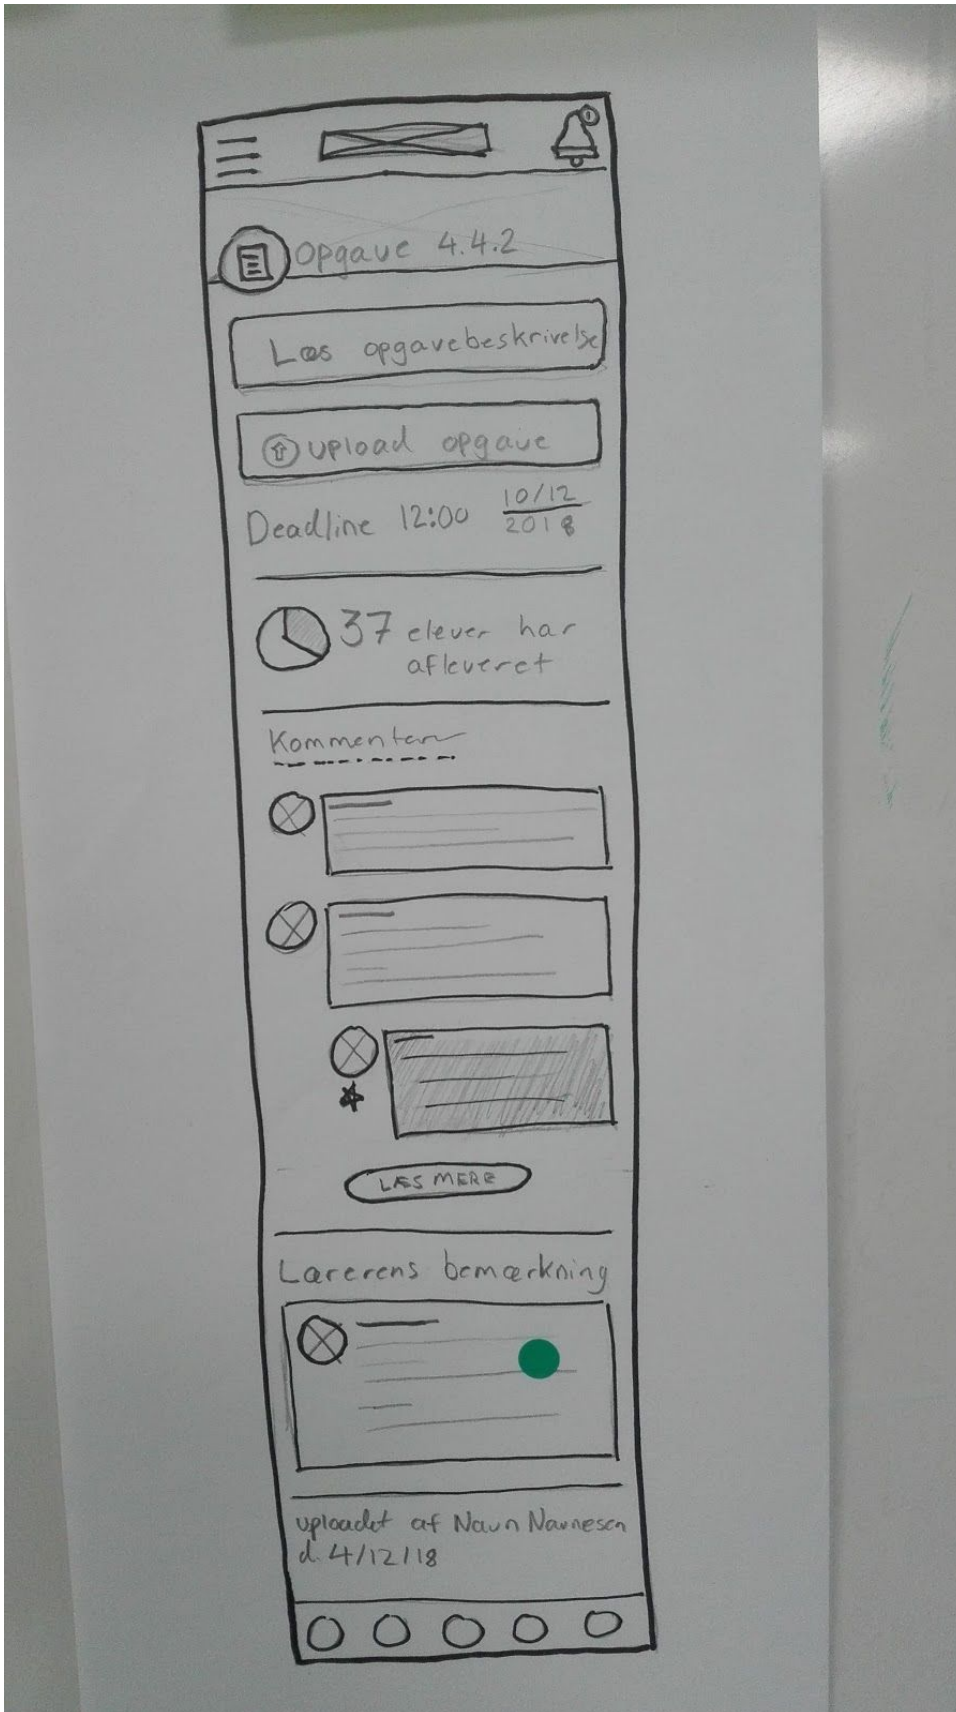 Opgave 4.4.2
Læs opgavebeskrivelse
upload opgave
Deadline 12:00 10/12
2018
37 elever har
afleveret
Kommentarer
LÆS MERE
Lærerens bemærkning
uploadet af Navn Navnesen
d. 4/12/18